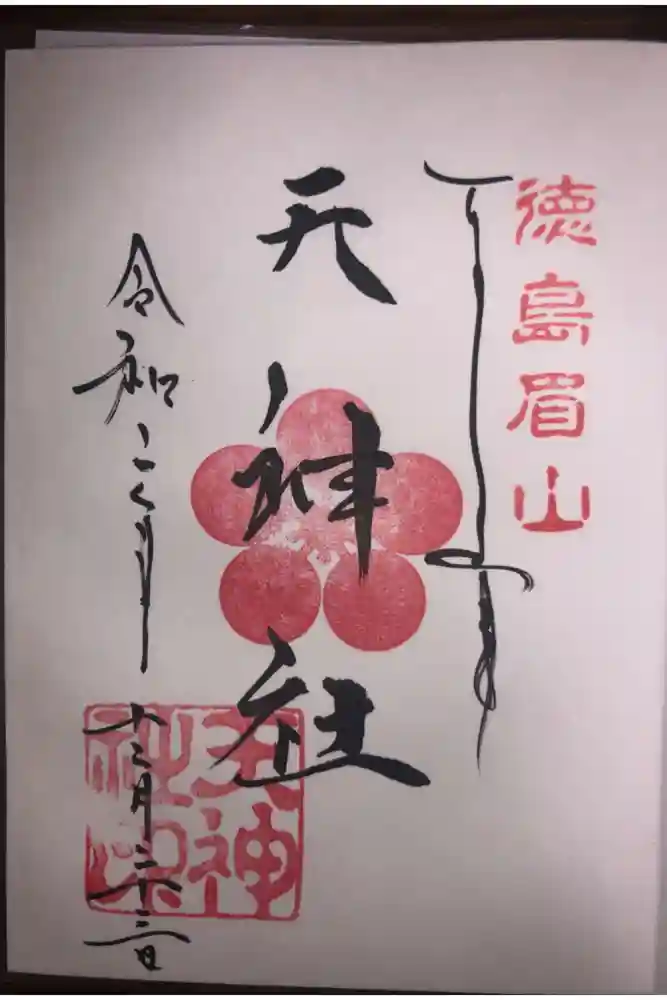 徳島眉山
奉拝
天神社
令和二年
十二月二十三日
天神
社印